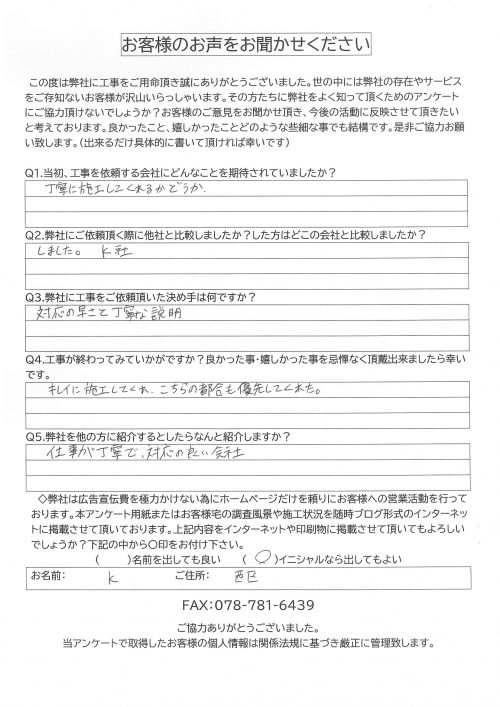 お客様のお声をお聞かせください
この度は弊社に工事をご用命頂き誠にありがとうございました。世の中には弊社の存在やサービス
をご存知ないお客様が沢山いらっしゃいます。その方たちに弊社をよく知って頂くためのアンケート
にご協力頂けないでしょうか？お客様のご意見をお聞かせ頂き、今後の活動に反映させて頂きたい
と考えております。良かったこと、嬉しかったことどのような些細な事でも結構です。是非ご協力お願
い致します。（出来るだけ具体的に書いて頂ければ幸いです）
Q1.当初、工事を依頼する会社にどんなことを期待されていましたか？
丁寧に施工してくれるかどうか.
Q2.弊社にご依頼頂く際に他社と比較しましたか？した方はどこの会社と比較しましたか？
しました。 K社
Q3.弊社に工事をご依頼頂いた決め手は何ですか？
対応の早さと丁寧な説明
Q4.工事が終わってみていかがですか？良かった事・嬉しかった事を忌憚なく頂戴出来ましたら幸い
です。
キレイに施工してくれ、こちらの都合も優先してくれた。
Q5.弊社を他の方に紹介するとしたらなんと紹介しますか？
仕事が丁寧で、対応の良い会社
◇弊社は広告宣伝費を極力かけない為にホームページだけを頼りにお客様への営業活動を行って
おります。本アンケート用紙またはお客様宅の調査風景や施工状況を随時ブログ形式のインターネッ
トに掲載させて頂いております。上記内容をインターネットや印刷物に掲載させて頂いてもよろしい
でしょうか？下記の中から〇印をお付け下さい。
( )名前を出しても良い (〇)イニシャルなら出してもよい
お名前: K ご住所:
FAX:078-781-6439
ご協力ありがとうございました。
当アンケートで取得したお客様の個人情報は関係法規に基づき厳正に管理致します。